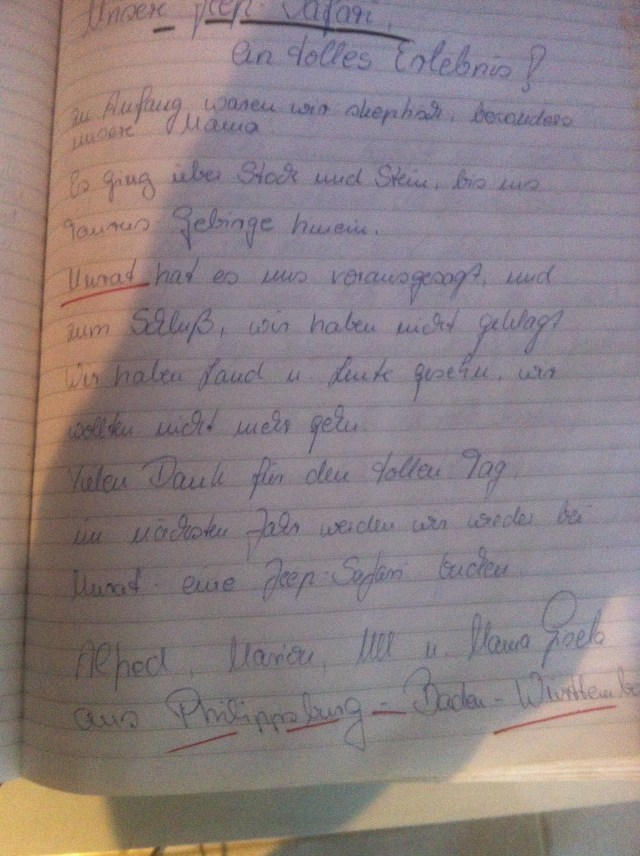 Unsere Jeep-Safari,
ein tolles Erlebnis!
zu Anfang waren wir skeptisch, besonders
unsere Mama
Es ging über Stock und Stein, bis ins
Taurus Gebirge hinein.
Murat hat es uns vorausgesagt, und
zum Schluß, wir haben nicht geklagt
Wir haben Land u Leute gesehn, wir
wollten nicht mehr gehn.
Vielen Dank für den tollen Tag
im nächsten Jahr werden wir wieder bei
Murat eine Jeep-Safari buchen
Alfred, Marion, Ulli u. Mama Gisela
aus Philippsburg - Baden-Württemb